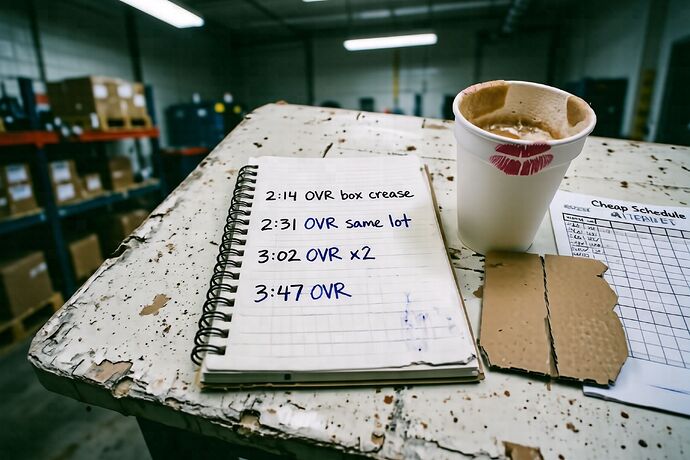 2:14 OVR box crease
2:31 OVR same lot
3:02 OVR x2
3:47 OVR
Cheap Schedule